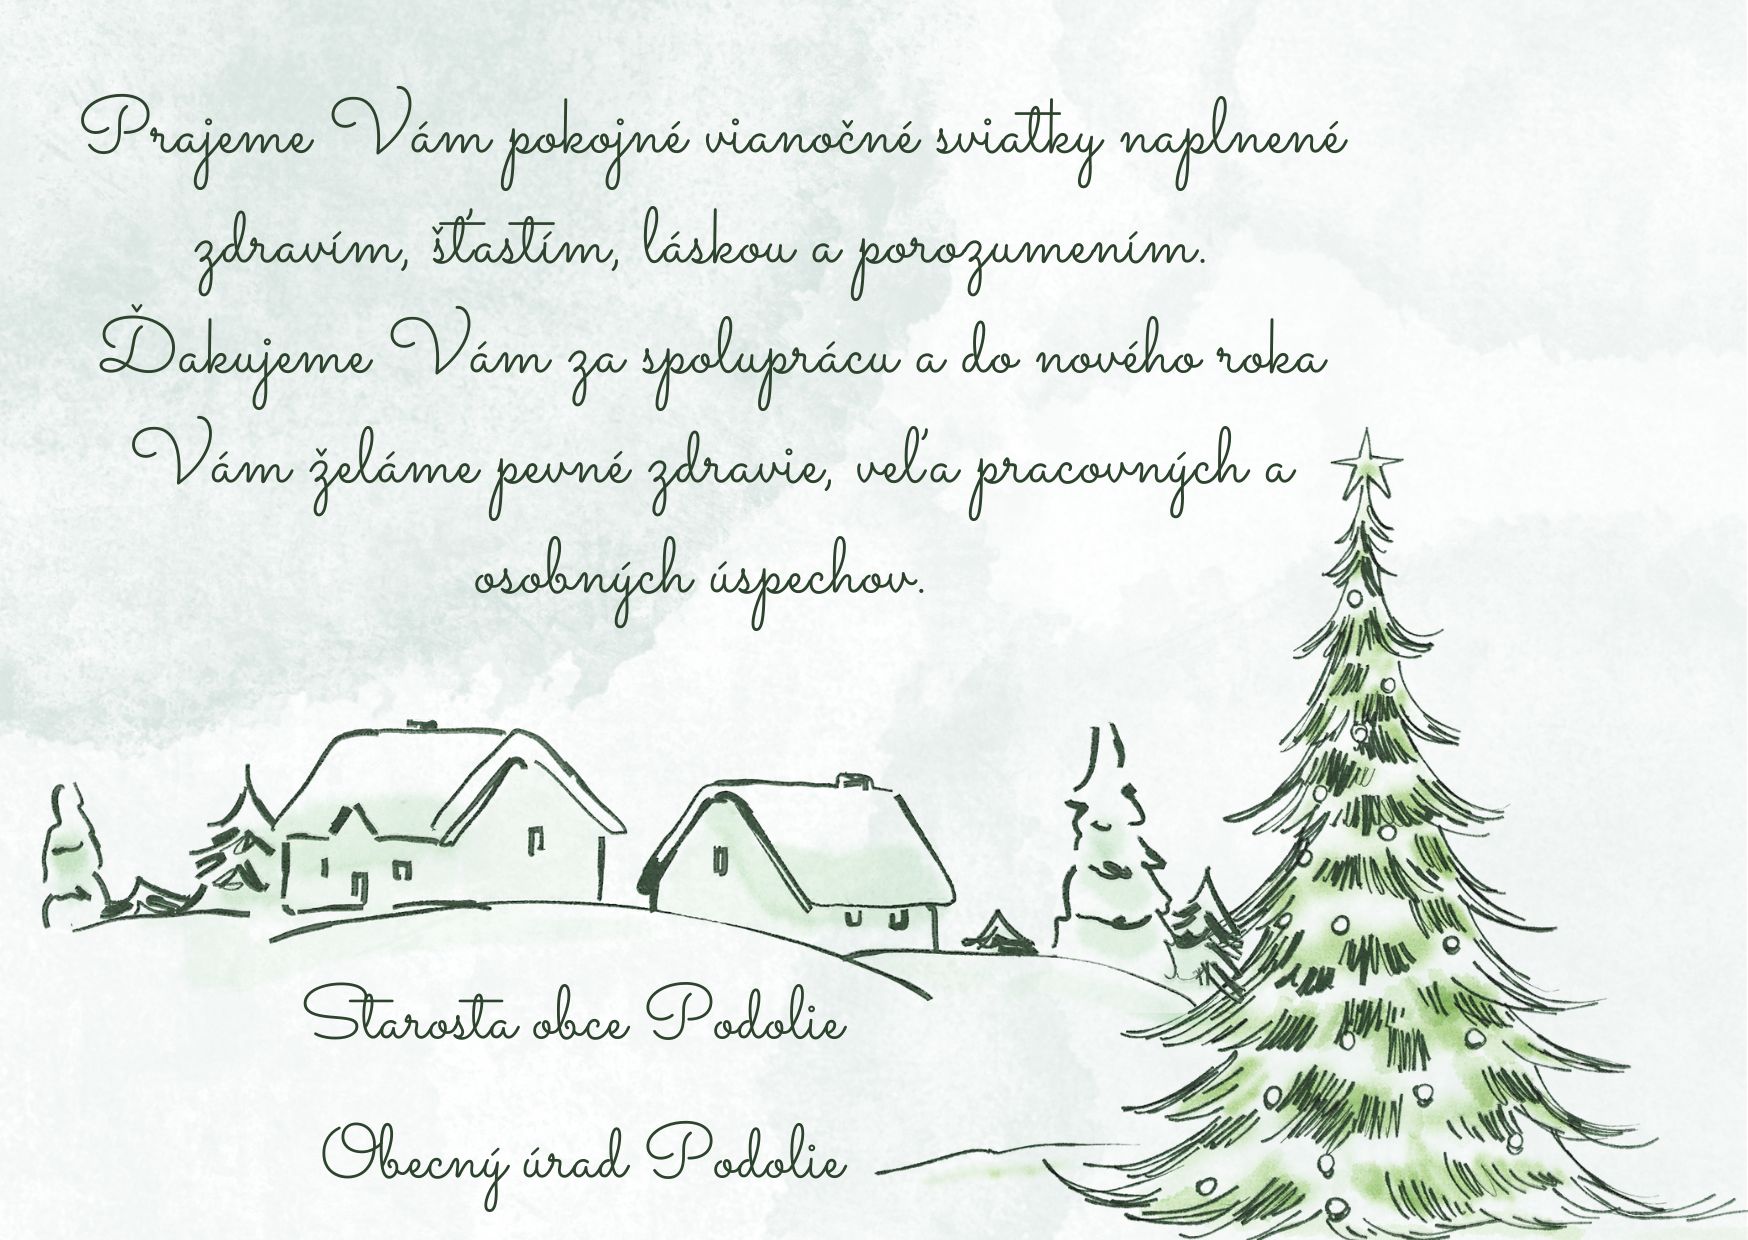 Prajeme Vám pokojné vianočné sviatky naplnené
zdravím, šťastím, láskou a porozumením.
Ďakujeme Vám za spoluprácu a do nového roka
Vám želáme pevné zdravie, veľa pracovných a
osobných úspechov.
Starosta obce Podolie
Obecný úrad Podolie